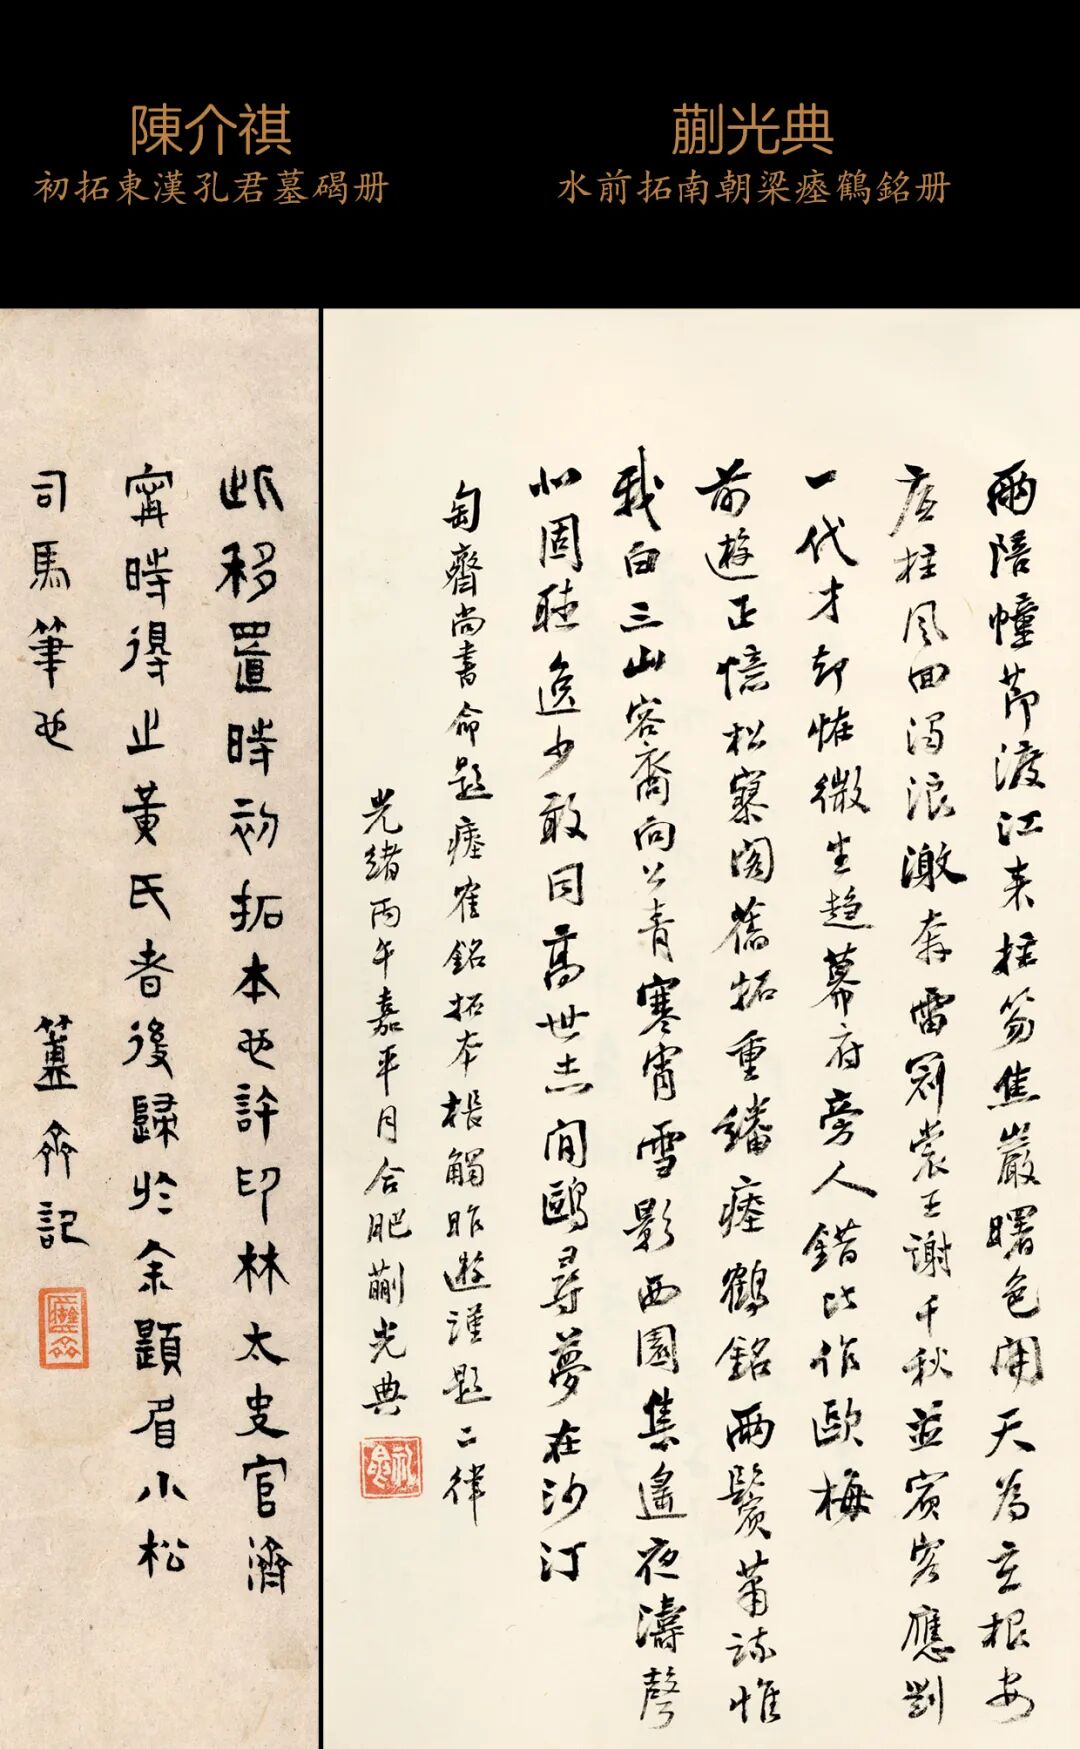 陳介祺
初拓東漢孔君墓碣册
蒯光典
水前拓南朝梁瘞鶴銘册
兩陪幢節渡江来拄笏焦巖曙色開天為立根安
底柱風回濁浪激奔雷冠裳王謝千秋並賓客應劉
一代才却怪微生趨幕府旁人錯比作歐梅
前遊正憶松寮閣舊拓重繙瘞鶴銘兩鬢蕭疏惟
我白三山容裔向公青寒宵雪影西園集遙夜濤聲
北固聽逸少敢同高世志閒鷗尋夢在沙汀
匋齋尚書命題瘞隺銘拓本棖觸昨遊謹題二律
光緒丙午嘉平月合肥蒯光典
此移置時初拓本也許印林太史官濟
寧時得止黃氏者後歸於余題眉小松
司馬筆也 簠齋記